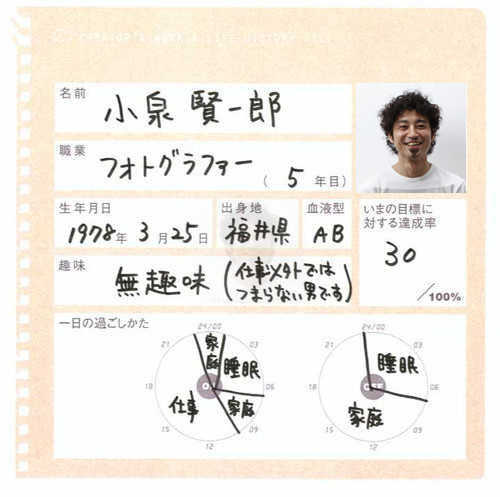 "CREATOR'S WORK & LIFE HISTORY FILE"
名前
小泉 賢一郎
職業
フォトグラファー
( 5 年目)
生年月日
1978年 3月25日
出身地
福井県
血液型
AB
いまの目標に
対する達成率
30
/100%
趣味
無趣味 (仕事以外では
つまらない男です)
一日の過ごしかた
24/00
03
06
09
12
15
18
21
家庭
睡眠
家庭
仕事
24/00
03
06
09
12
15
18
21
OFF
睡眠
家庭